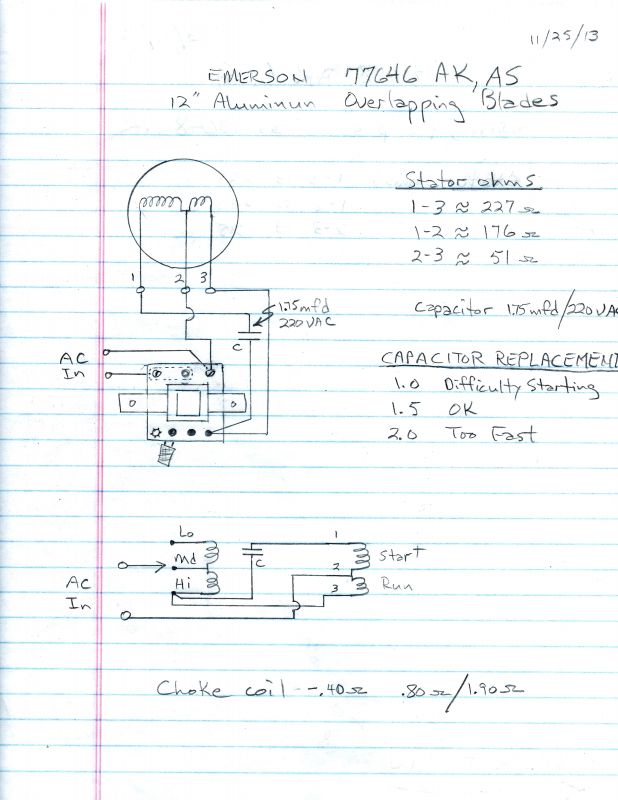 11/25/13
EMERSON 77646 AK, AS
12" Aluminun Overlapping Blades
Stator ohms
1-3 ≈ 227 Ω
1-2 ≈ 176 Ω
2-3 ≈ 51 Ω
1 2 3
1.75mfd
220VAC
C
Capacitor 1.75mfd/220VA
AC
In
CAPACITOR REPLACEMENT
1.0 Difficulty Starting
1.5 OK
2.0 Too Fast
Lo
Md
Hi
C
1
2
3
Start
Run
AC
In
Choke coil --.40Ω .80Ω/1.90Ω